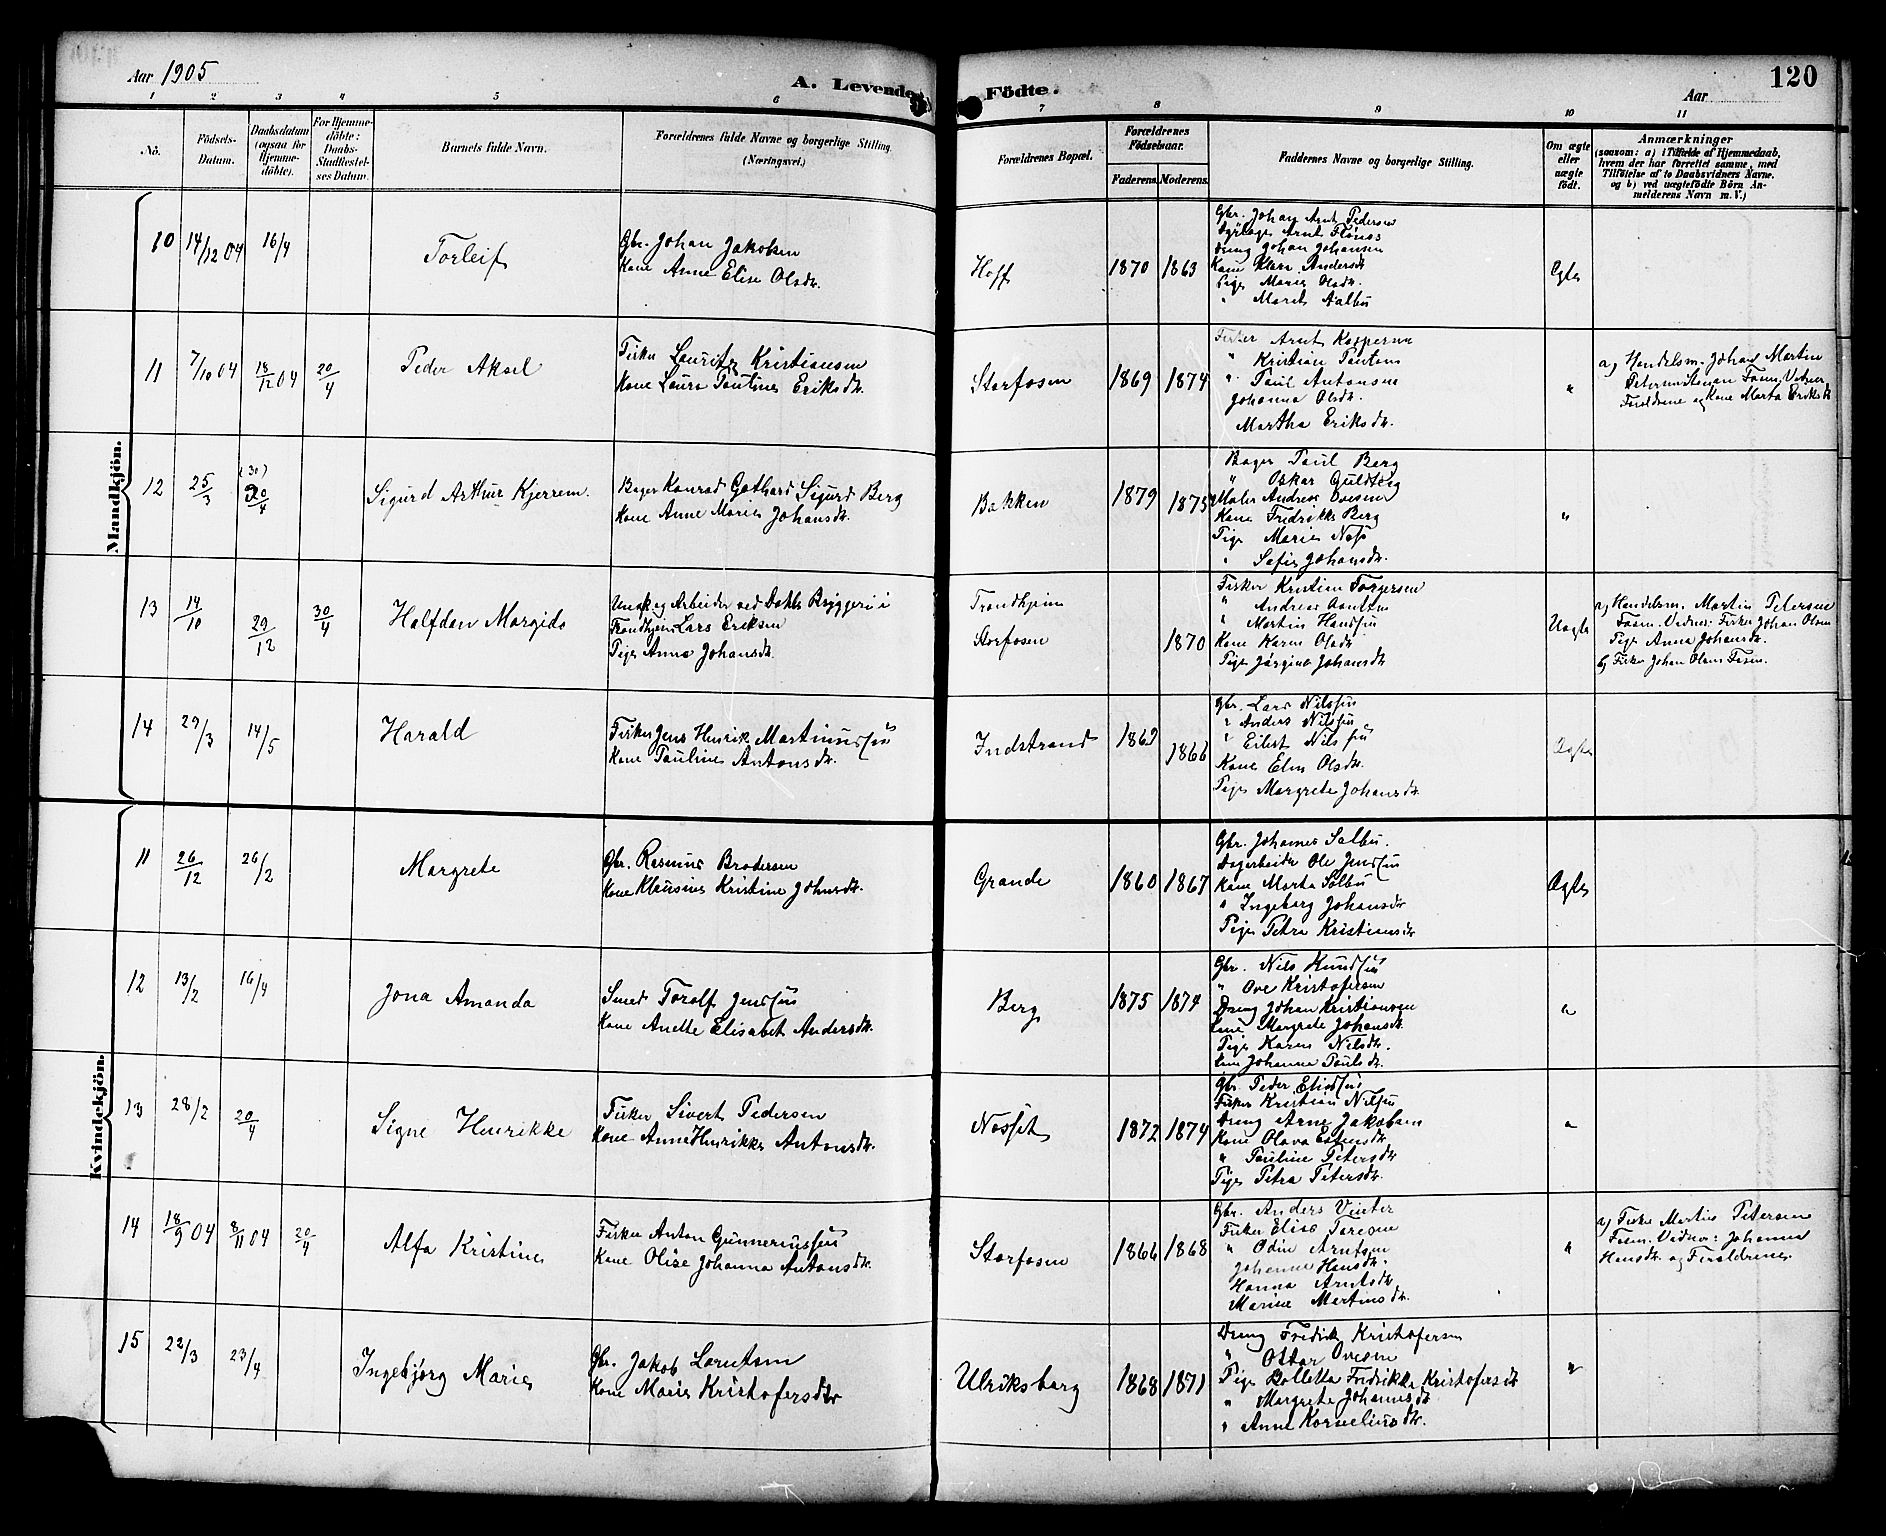 Aar 1905
A. Levende Födte.
Aar
120
1 2 3 4 5 6 7 8 9 10 11
No.
Födsels-Datum.
Daabsdatum (ogsaa for Hjemme-döbte).
For Hjemme-döbte: Daabs-Stadfæstel-ses Datum.
Barnets fulde Navn.
Forældrenes fulde Navne og borgerlige Stilling (Næringsvei.)
Forældrenes Bopæl.
Forældrenes Födselsaar.
Faderens. Moderens.
Faddernes Navne og borgerlige Stilling.
Om ægte eller uægte födt.
Anmærkninger
(saasom: a) i Tilfælde af Hjemmedaab,
hvem der har forrettet samme, med
Tilföielse af to Daabsvidners Navne.
og b) ved uægtefödte Börn An-
melderens Navn m. V.)
Mandkjön.
10 14/12 04 16/4
Torleif
Gbr. Johan Jakobsen
Kone Anne Elise Olsdtr.
Hoff
1870 1863
Gbr. Johan Arnt Pedersen
Arnt
Dreng Johan Johansen
Kone Andersdtr
Pige Marie Olsdtr.
" Marit Aalbu
Ægte
11 7/10 04 18/12 04 20/4
Peder Aksel
Fisker Lauritz Kristiansen
Kone Laura Pauline Eriksdtr.
Storfosen
1869 1874
Fisker Arnt Kaspersen
" Kristian Paulsen
" Paul Antonsen
Johanna Olsdtr.
Martha Eriksdtr.
"
a) Handelsm. Johan Martin
Petersen Fosen. Vidner
Forældrene og Kone Marta Eriksdtr
12 25/3 (30) 30/4
Sigurd Arthur Kjerrem.
Bager Konrad Gothard Sigurd Berg
Kone Anne Marie Johansdtr.
Bakken
1879 1875
Bager Paul Berg
" Oskar Guldberg
Maler Andreas Ovesen
Kone Fredrikke Berg
Pige Marie Næss
" Sofie Johansdtr.
"
13 14/10 29/12 30/4
Halfdan Margido
Ungk. og Arbeider ved Dahls Bryggeri i
Trondhjem Lars Eriksen
Pige Anna Johansdtr.
Trondhjem
Storfosen
1870
Fisker Kristian Torgersen
" Andreas
" Martin Hansen
Kone Karen Olsdtr
Pige Jørgine Johansdtr
Uægte
a) Handelsm. Martin Petersen
Fosen. Vidner: Fisker Johan Olsen
Pige Anna Johansdtr.
b) Fisker Johan Olsen Fosen.
14 29/3 14/5
Harald
Fisker Jens Henrik Martinussen
Kone Pauline Antonsdtr.
Indstrand
1869 1866
Gbr. Lars Nilssen
" Anders Nilssen
" Eilert Nilssen
Kone Elen Olsdtr.
Pige Margrete Johansdtr.
Ægte
Kvindekjön.
11 26/12 26/2
Margrete
Gbr. Rasmus Brodersen
Kone Klausine Kristine Johnsdtr.
Grande
1860 1867
Gbr. Johannes Solbu.
Dagarbeider Ole Jenssen
Kone Marta Solbu
" Ingeborg Johansdtr
Pige Petra Kristiansdtr
Ægte
12 13/2 16/4
Jona Amanda
Smed Torolf Jenssen
Kone Anette Elisabet Andersdtr.
Berg
1875 1874
Gbr. Nils Knudsen
" Ove Kristofersen
Dreng Johan Kristiansen
Kone Margrete Johansdtr
Pige Karen Nilsdtr.
Johanna Paulsdtr.
"
13 28/2 20/4
Signe Henrikke
Fisker Sivert Pedersen
Kone Anne Henrikke Antonsdtr.
Næsset
1872 1874
Gbr. Peder Eliassen
Fisker Kristian Nilsen
Dreng Arne Jakobsen
Kone Olava Estensdtr.
" Pauline Petersdtr
Pige Petra Petersdtr.
"
14 18/9 04 8/11 04 20/4
Alfa Kristine
Fisker Anton Gunneriussen
Kone Olise Johanna Antonsdtr.
Storfosen
1866 1868
Gbr. Anders Vinter
Fisker Elias
" Odin Arntsen
Johanne Hansdtr.
Hanna Arntsdtr
Marine Martinsdtr.
"
a) Fisker Martin Petersen
Fosen. Vidner: Johanna
Hansdtr. og Forældrene.
15 22/3 23/4
Ingebjørg Marie
Gbr. Jakob Lorntsen
Kone Marie Kristofersdtr
Ulriksborg
1868 1871
Dreng Fredrik Kristofersen
" Ottar Ovesen
Pige Bolletta Fredrikke Kristofersdtr
" Margrete Johannesdtr
" Anne Korneliusdtr.
"